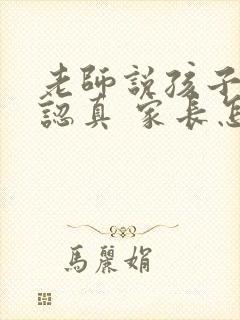 老師說孩子
認真 家長怎
馬麗娟